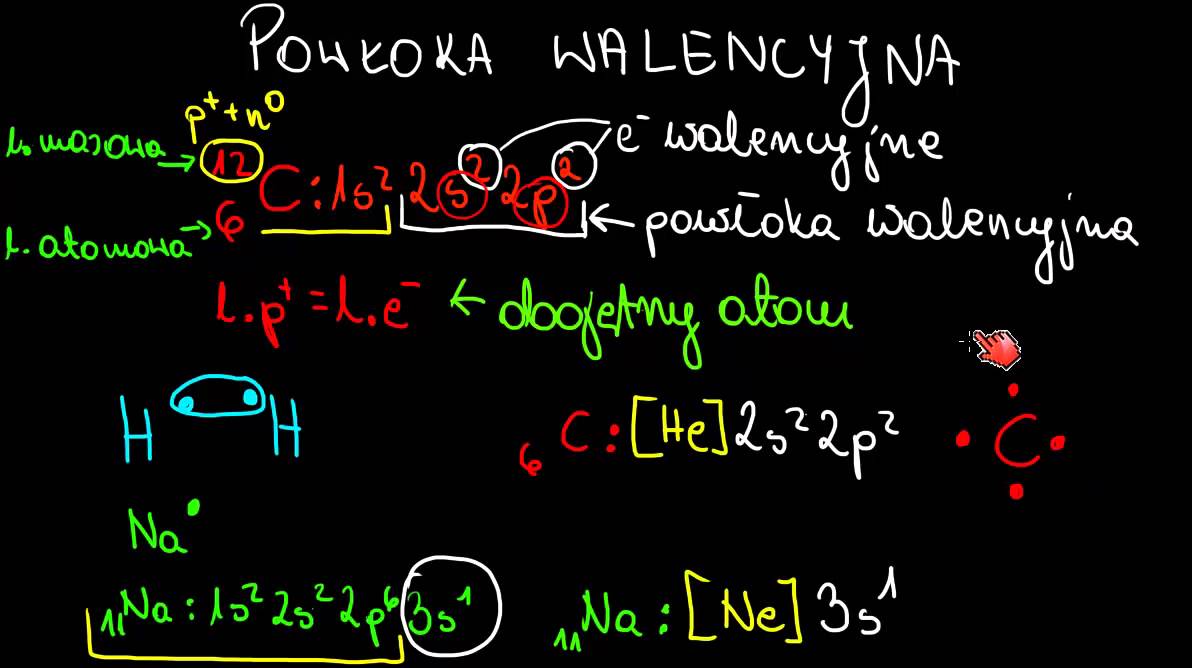 POWŁOKA WALENCYJNA
p⁺+n⁰
l. masowa → 12
e⁻ walencyjne
C: 1s² 2s² 2p²
l. atomowa → 6
← powłoka walencyjna
l.p⁺ = l.e⁻ ← obojętny atom
H H
₆C: [He] 2s² 2p²
C
Na
₁₁Na: 1s² 2s² 2p⁶ 3s¹
₁₁Na: [Ne] 3s¹